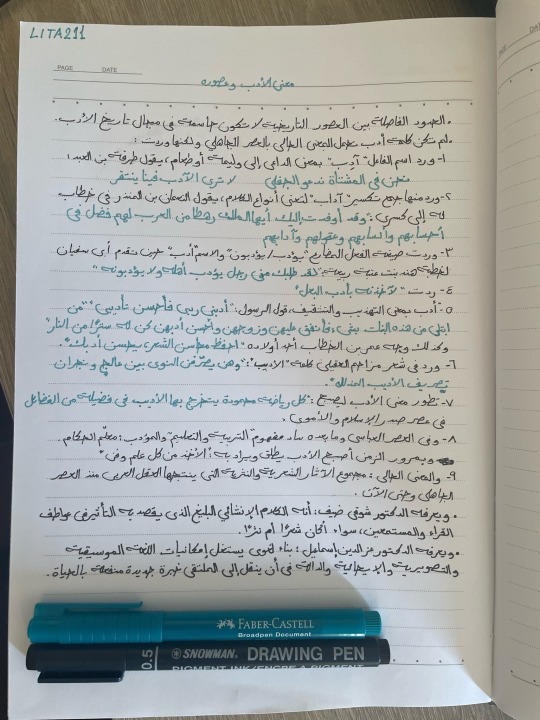 LITA211
PAGE DATE
معنى الأدب وعصوره
• الحدود الفاصلة بين العصور التاريخية لا تكون حاسمة في مجال تاريخ الأدب.
• لم تكن كلمة أدب تحمل المعنى الحالي بالعصر الجاهلي ولكنها وردت:
١- ورد اسم الفاعل "آدب" بمعنى الداعي إلى وليمة أو طعام، يقول طرفة بن العبد:
نحن في المشتاة ندعو الجفلى لا ترى الآدب فينا ينتقر
٢- ورد منها جمع تكسير "آداب" لتعني أنواع الكلام، يقول النعمان بن المنذر في خطاب
له إلى كسرى: "وقد أوفدت إليك أيها الملك رهطا من العرب لهم فضل في
أحسابهم وأنسابهم وعقولهم وآدابهم
٣- وردت صيغة الفعل المضارع "يؤدب/ يؤدبون" والاسم "أدب" حين تقدم أبي سفيان
لخطبة هند بنت عتبة ربيعة "لقد طلبك مني رجل يؤدب أهله ولا يؤدبونه"
٤- ردت "لآخذنه بأدب البعل"
٥- أدب بمعنى التهذيب والتثقيف، قول الرسول: "أدبني ربي فأحسن تأديبي" "من
ابتلي من هذه البنات بشيء، فأنفق عليهن وزوجهن وأحسن أدبهن كن له سترًا من النار"
وكذلك وجه عمر بن الخطاب أحد أولاده "احفظ محاسن الشعر يحسن أدبك".
٦- ورد في شعر مزاحم العقيلي كلمة "الأديب": "وهن يصرّفن النوى بين عالج ونجران
تصريف الأديب المذلل".
٧- تطور معنى الأدب ليصبح: "كل رياضة محمودة يتخرج بها الأديب في فضيلة من الفضائل
في عصر صدر الإسلام والأموي.
٨- وفي العصر العباسي وما بعده ساد مفهوم التربية والتعليم والمؤدب: معلّم الحكام.
وبمرور الزمن أصبح الأدب يطلق ويراد به: الأخذ من كل علم وفن
٩- والمعنى الحالي: مجموع الآثار الشعرية والنثرية التي ينتجها العقل العربي منذ العصر
الجاهلي وحتى الآن.
• ويعرفه الدكتور شوقي ضيف: أنه الكلام الإنشائي البليغ الذي يقصد به التأثير في عواطف
القراء والمستمعين، سواء أكان شعرًا أم نثرًا.
• ويعرفه الدكتور عز الدين إسماعيل: بناء لغوي يستغل إمكانيات اللغة الموسيقية
والتصويرية والإيحائية والدالة في أن ينقل إلى المتلقي خبرة جديدة منفعلة بالحياة.
FABER-CASTELL
Broadpen Document
0.5 SNOWMAN. DRAWING PEN
PIGMENT INK/ENCRE A PIGMENT